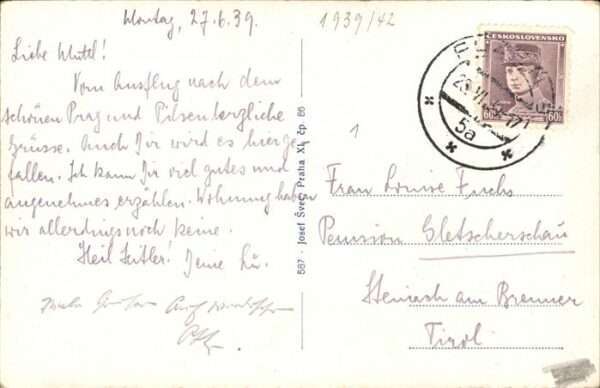 Montag, 27.6.39.
1939/42
Liebe Mutti!
Vom Ausflug nach dem
schönen Prag und Pilsen herzliche
Grüsse. Auch Dir wird es hier ge-
fallen. Ich kann Dir viel gutes und
angenehmes erzählen. Wohnung haben
wir allerdings noch keine.
Heil Hitler! Deine Lu.
1
567 - Josef Švec, Praha XI., čp. 86
ČESKOSLOVENSKO
60h
60h
5a
Frau Louise Fuchs
Pension Gletscherschau
Steinach am Brenner
Tirol